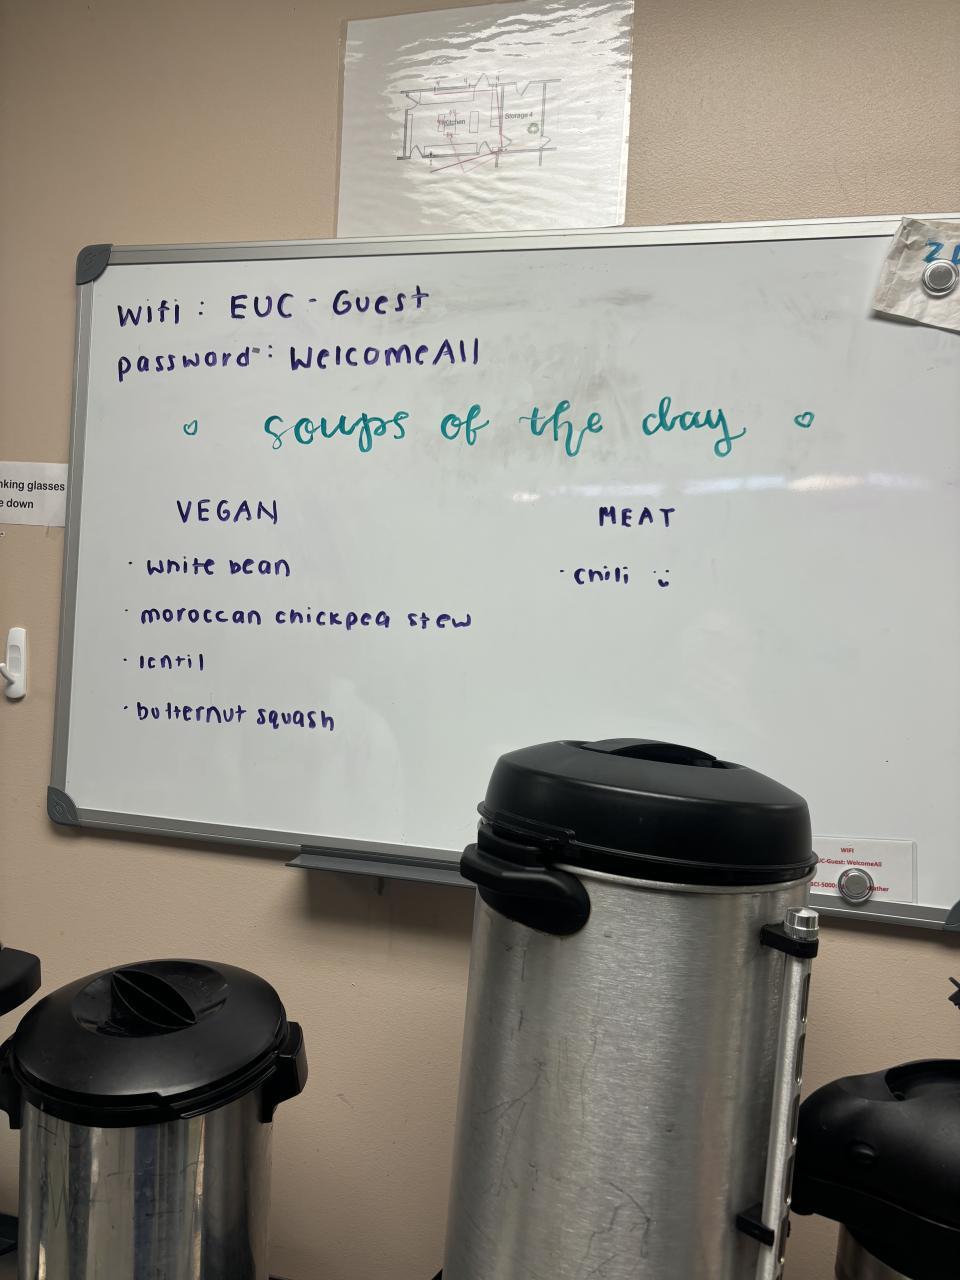 Kitchen
Storage 4
Wifi : EUC - Guest
password : WelcomeAll
soups of the day
VEGAN
· white bean
· moroccan chickpea stew
· lentil
· butternut squash
MEAT
· chili
nking glasses
e down
WIFI
UC-Guest: WelcomeAll